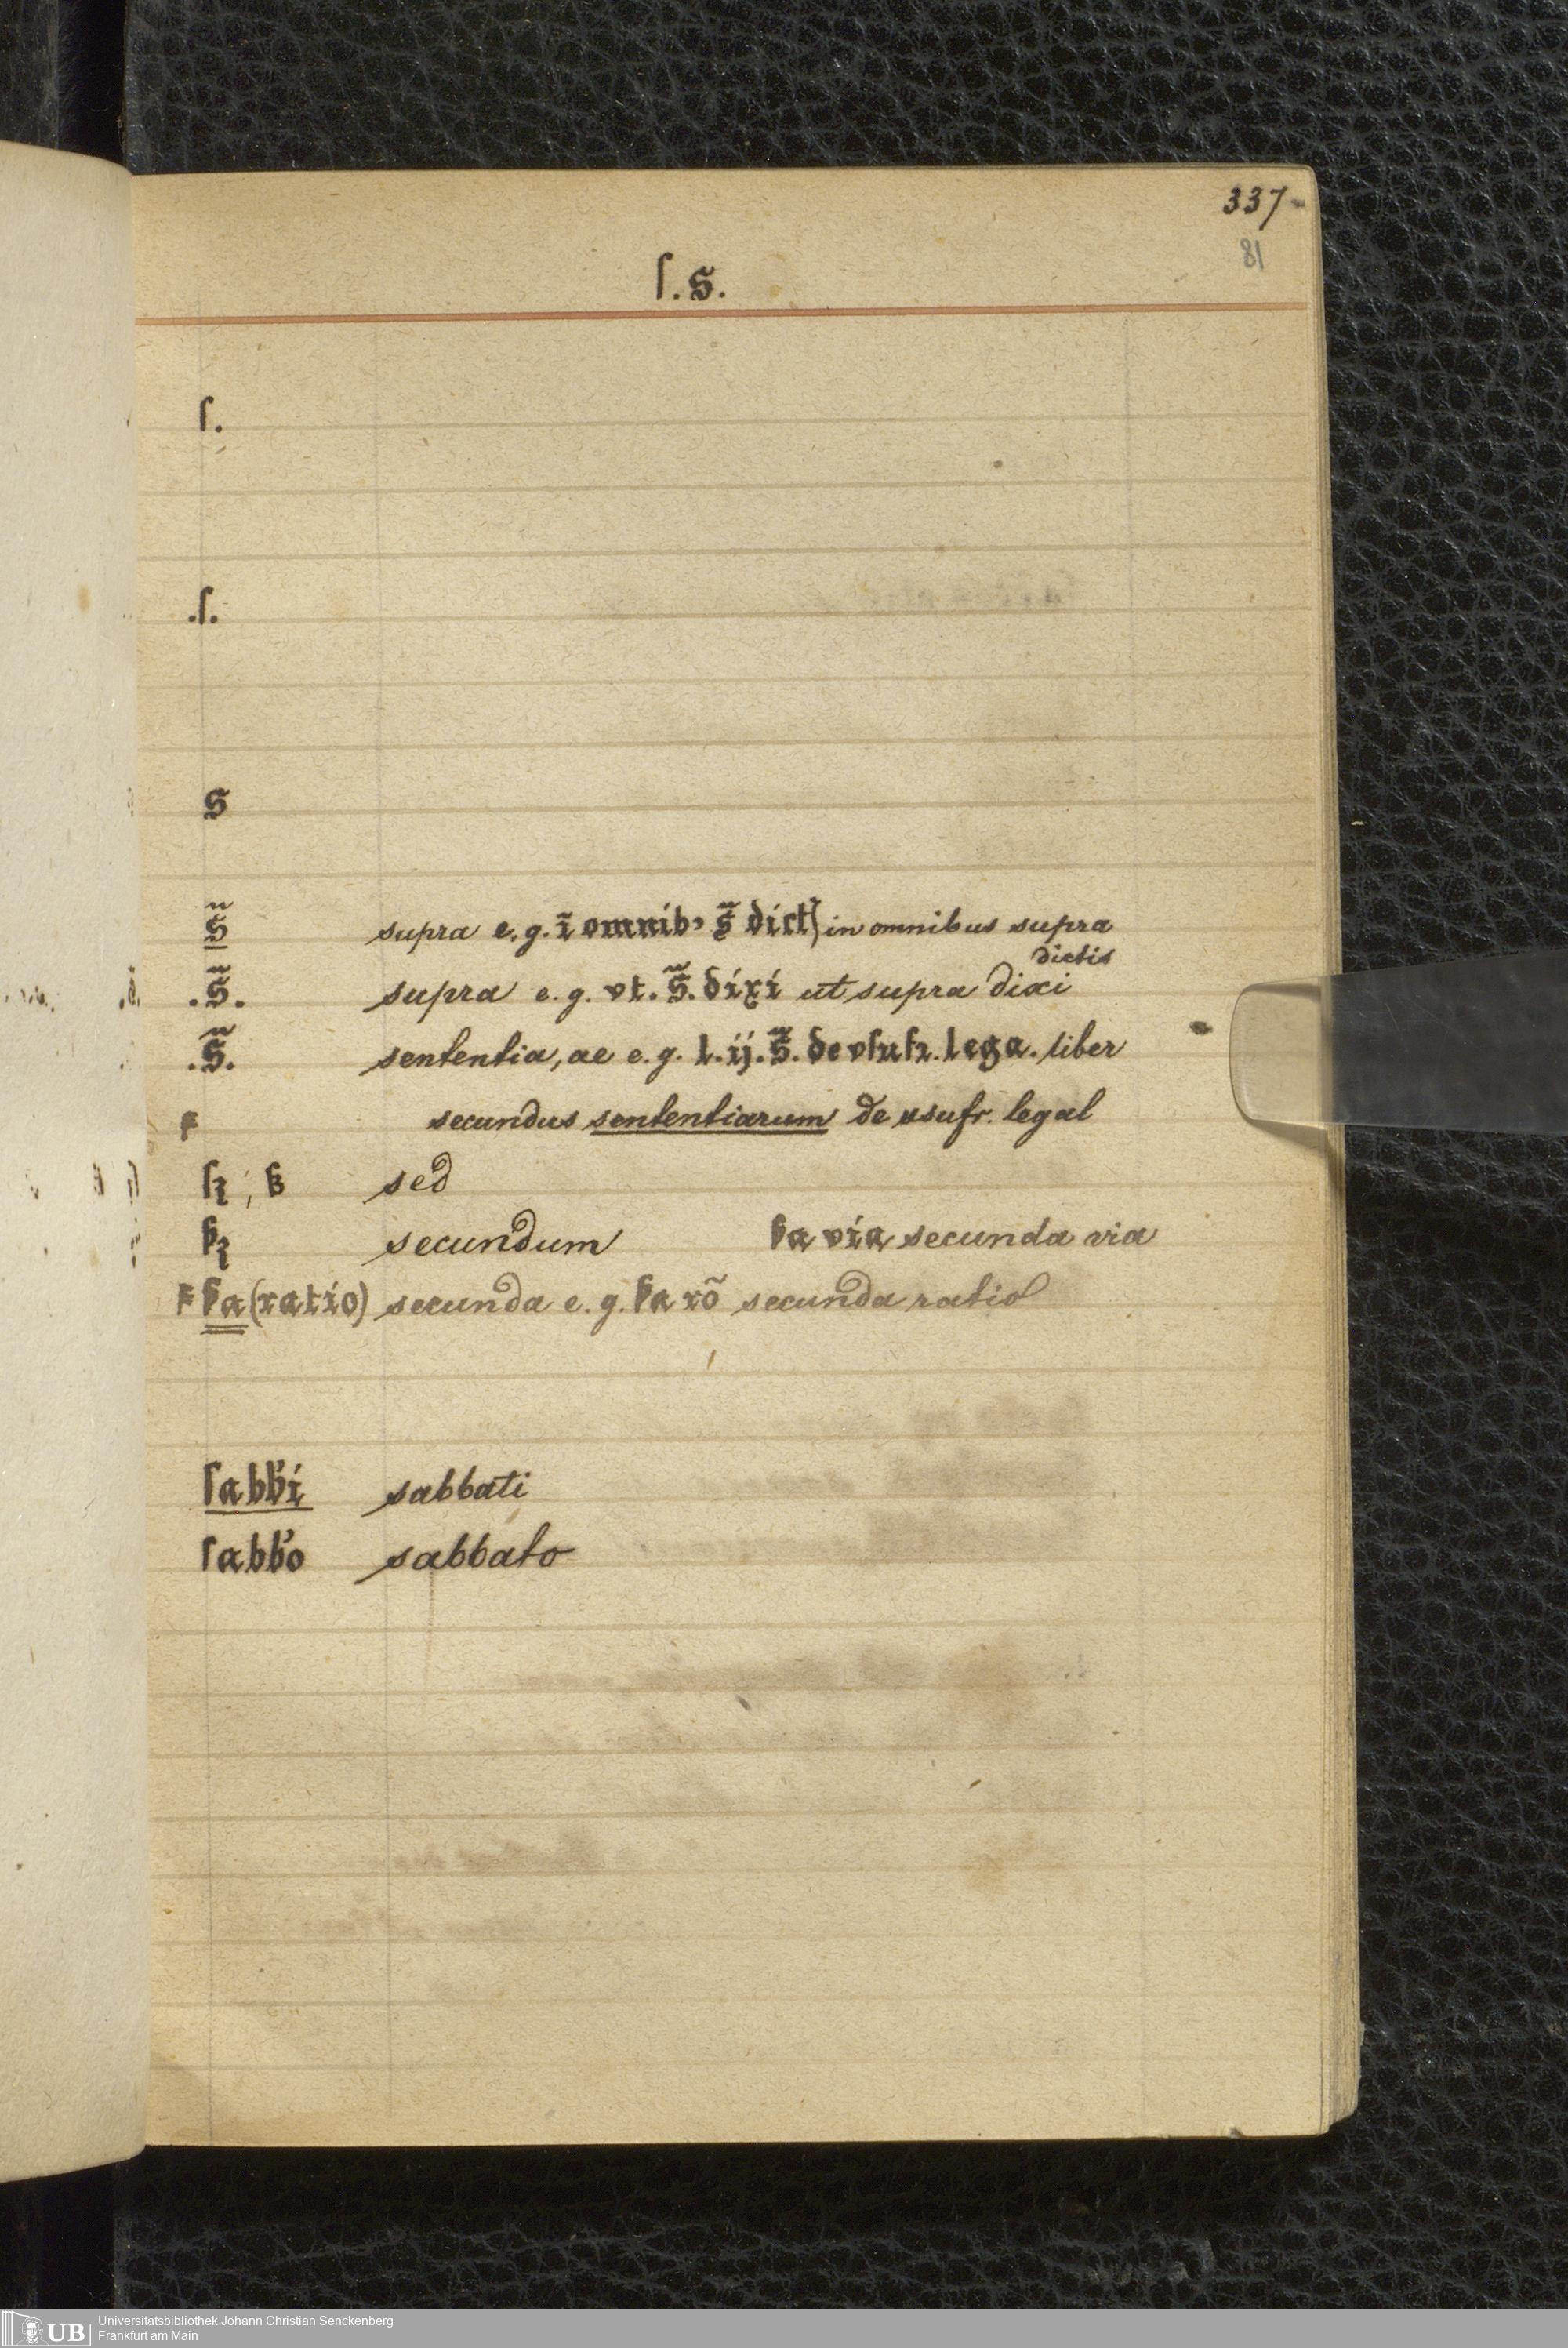 337
81
ſ. s.
ſ.
.ſ.
s
s̃ supra e.g. ĩ omnibꝰ s̃ dict) in omnibus supra
dictis
.s̃. supra e.g. vt. s̃. dixi ut supra dixi
.s̃. sententia, ae e.g. l. ij. s̃. de vſufr. lega. liber
F secundus sententiarum de usufr. legal
ſꝫ, ß sed
secundum ẞa via secunda via
F ẞa (ratio) secunda e.g. ẞa rõ secunda ratio
ſabb'i sabbati
ſabb'o sabbato
UB Universitätsbibliothek Johann Christian Senckenberg
Frankfurt am Main